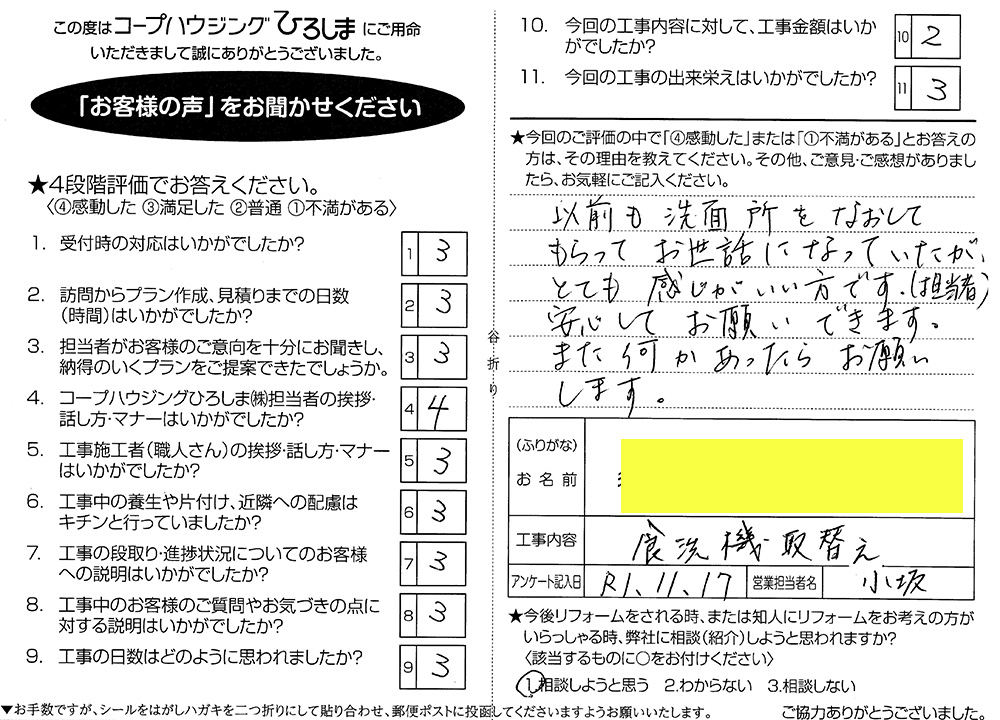 この度はコープハウジングひろしまにご用命
いただきまして誠にありがとうございました。
「お客様の声」をお聞かせください
★4段階評価でお答えください。
〈④感動した ③満足した ②普通 ①不満がある〉
1. 受付時の対応はいかがでしたか?
1 3
2. 訪問からプラン作成、見積りまでの日数
(時間)はいかがでしたか?
2 3
3. 担当者がお客様のご意向を十分にお聞きし、
納得のいくプランをご提案できたでしょうか。
3 3
4. コープハウジングひろしま㈱担当者の挨拶・
話し方・マナーはいかがでしたか?
4 4
5. 工事施工者(職人さん)の挨拶・話し方・マナー
はいかがでしたか?
5 3
6. 工事中の養生や片付け、近隣への配慮は
キチンと行っていましたか?
6 3
7. 工事の段取り・進捗状況についてのお客様
への説明はいかがでしたか?
7 3
8. 工事中のお客様のご質問やお気づきの点に
対する説明はいかがでしたか?
8 3
9. 工事の日数はどのように思われましたか?
9 3
▼お手数ですが、シールをはがしハガキを二つ折りにして貼り合わせ、郵便ポストに投函してくださいますようお願いいたします。
谷折り
10. 今回の工事内容に対して、工事金額はいか
がでしたか?
10 2
11. 今回の工事の出来栄えはいかがでしたか?
11 3
★今回のご評価の中で「④感動した」または「①不満がある」とお答えの
方は、その理由を教えてください。その他、ご意見・ご感想がありまし
たら、お気軽にご記入ください。
以前も洗面所をなおして
もらってお世話になっていたが、
とても感じがいい方です。(担当者)
安心してお願いできます。
また何かあったらお願い
します。
(ふりがな)
お名前
工事内容 食洗機取替え
アンケート記入日 R1.11.17 営業担当者名 小坂
★今後リフォームをされる時、または知人にリフォームをお考えの方が
いらっしゃる時、弊社に相談(紹介)しようと思われますか?
〈該当するものに○をお付けください〉
1.相談しようと思う 2.わからない 3.相談しない
ご協力ありがとうございました。